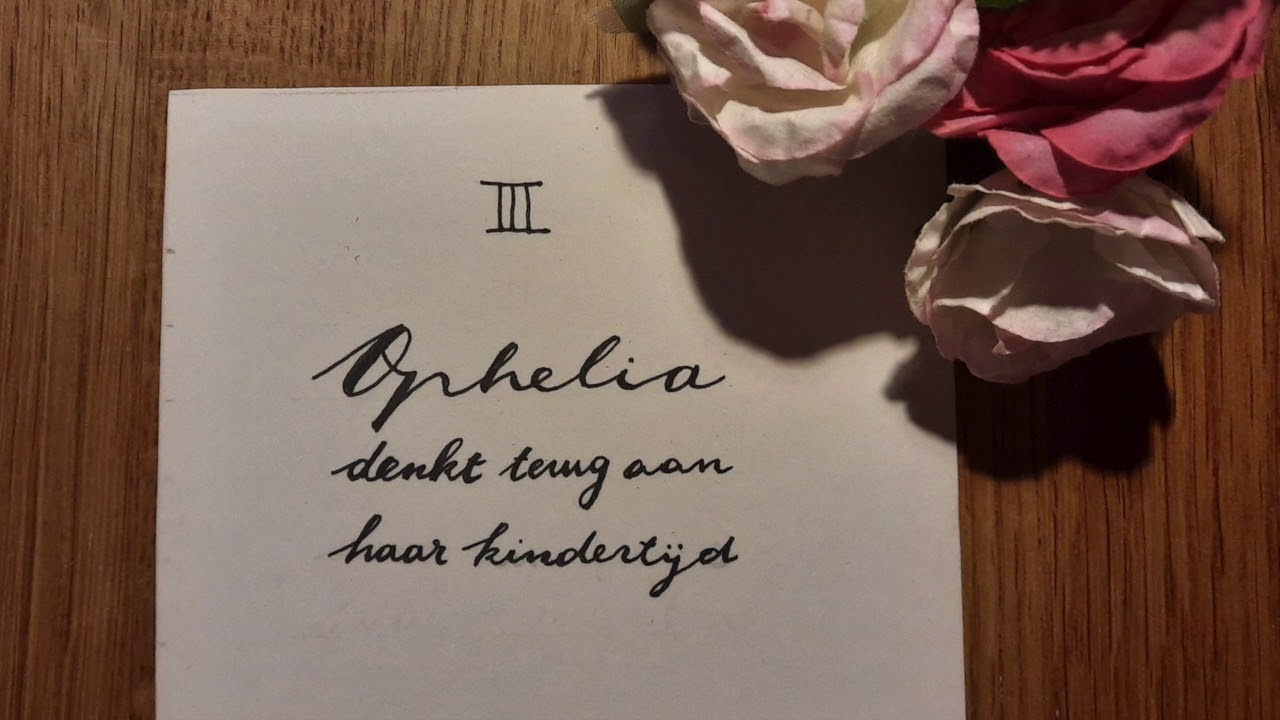 III
Ophelia
denkt terug aan
haar kindertijd